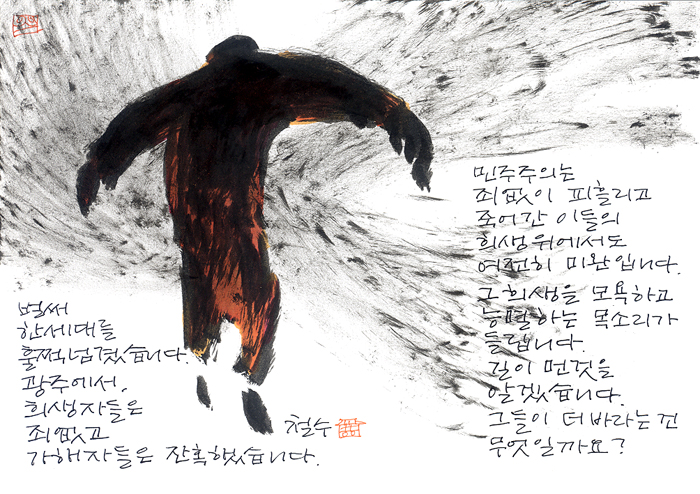 벌써
한세대를
훌쩍넘겼습니다.
광주에서,
희생자들은
죄없고
가해자들은 잔혹했습니다.
철수
민주주의는
죄없이 피흘리고
죽어간 이들의
희생위에서도
여전히 미완입니다.
그희생을 모욕하고
능멸하는 목소리가
들립니다.
길이 먼것을
알겠습니다.
그들이 더바라는건
무엇일까요?